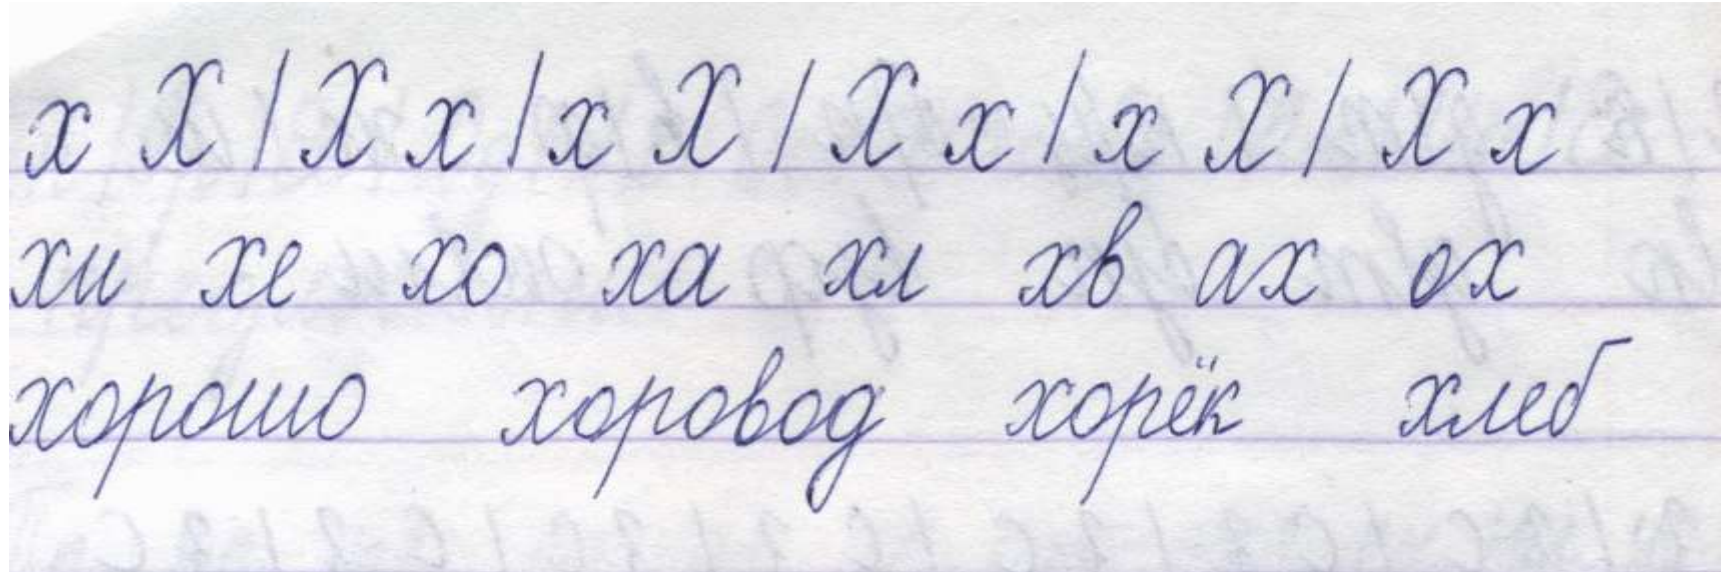 х Х / Х х / х Х / Х х / х Х / Х х
хи хе хо ха хл хв ах ох
хорошо хоровод хорёк хлеб